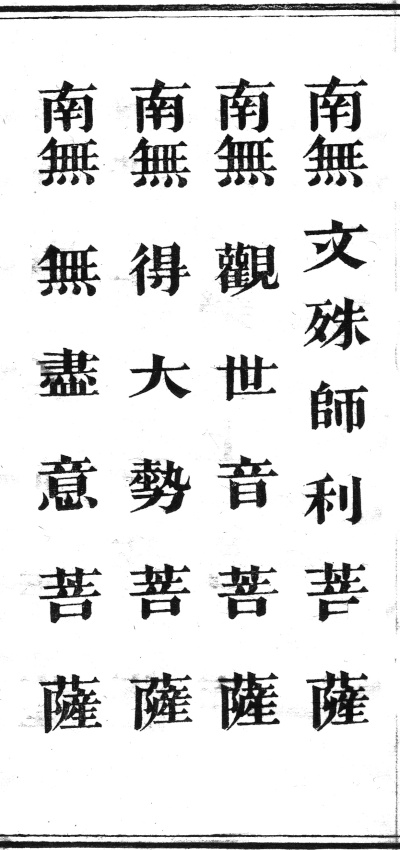 南無文殊師利菩薩
南無觀世音菩薩
南無得大勢菩薩
南無無盡意菩薩